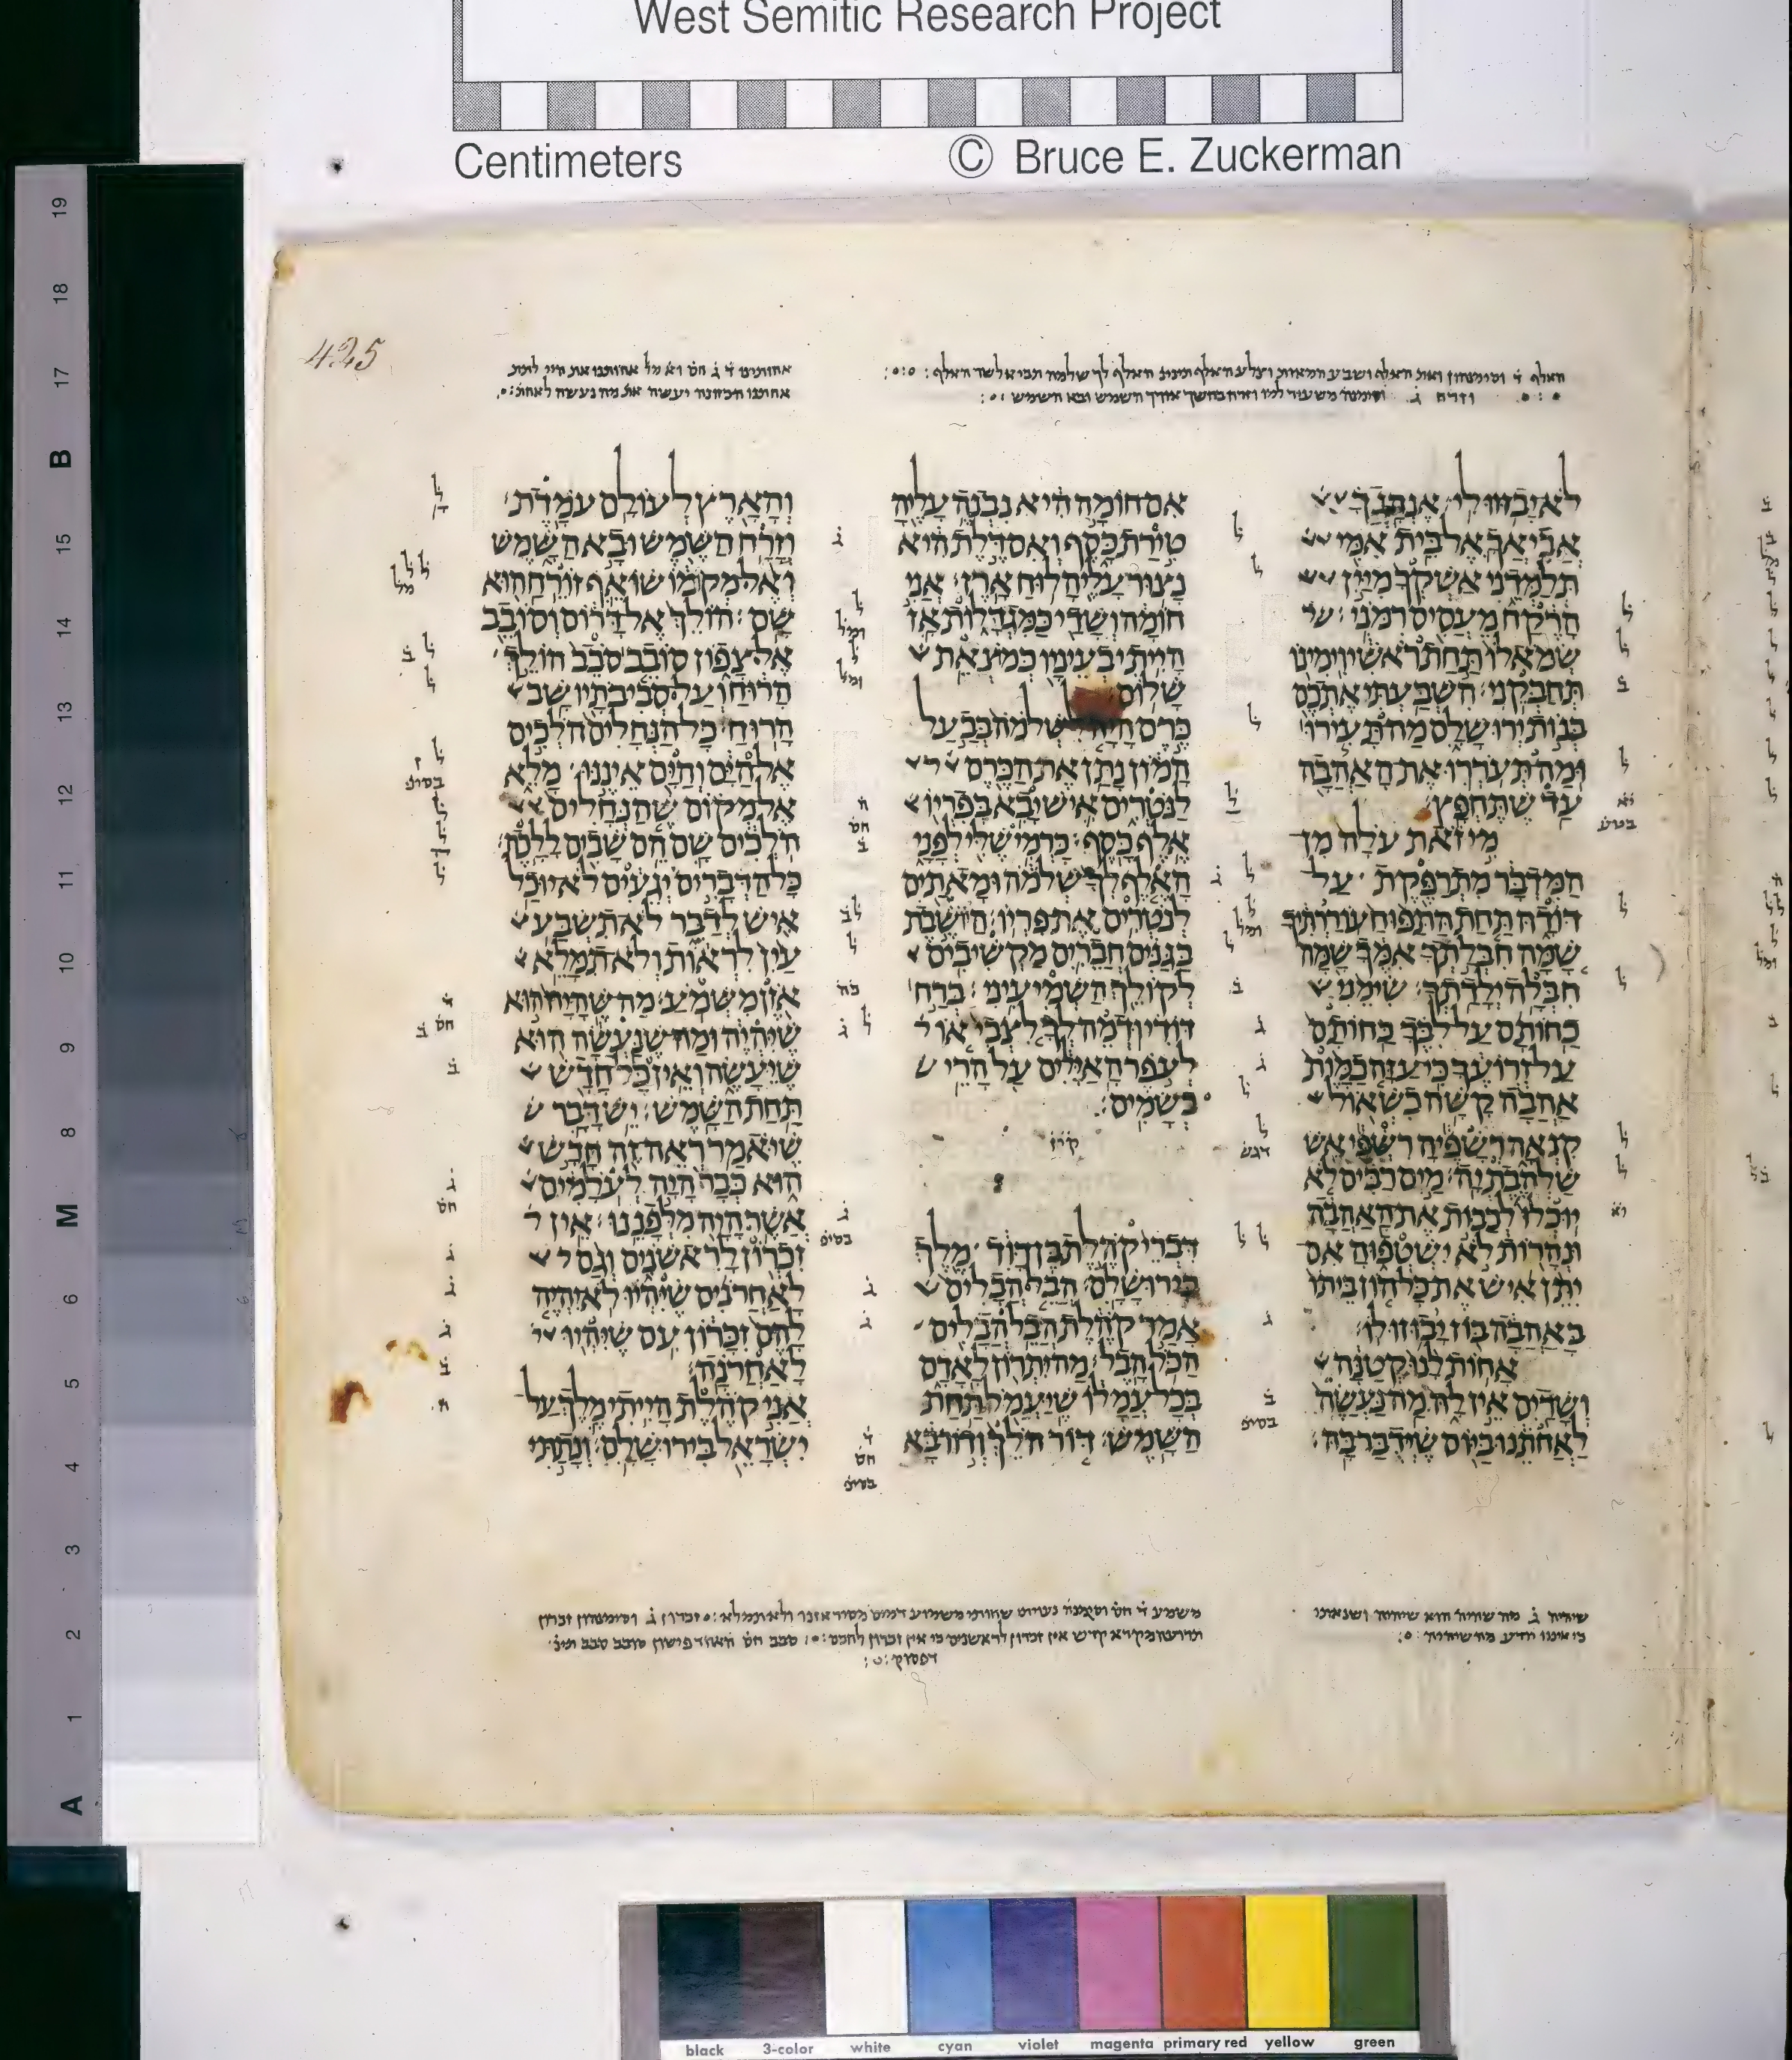 West Semitic Research Project
Centimeters © Bruce E. Zuckerman
425
לֹא־יָבֻ֥זוּ לִֽי׃ אֶנְהָֽגֲךָ֗
אֲבִֽיאֲךָ֛ אֶל־בֵּ֥ית אִמִּ֖י
תְּלַמְּדֵ֑נִי אַשְׁקְךָ֙ מִיַּ֣יִן
הָרֶ֔קַח מֵעֲסִ֖יס רִמֹּנִֽי׃
שְׂמֹאלוֹ֙ תַּ֣חַת רֹאשִׁ֔י וִֽימִינ֖וֹ
תְּחַבְּקֵֽנִי׃ הִשְׁבַּ֥עְתִּי אֶתְכֶ֖ם
בְּנ֣וֹת יְרוּשָׁלִָ֑ם מַה־תָּעִ֧ירוּ
וּֽמַה־תְּעֹ֥רְר֛וּ אֶת־הָאַהֲבָ֖ה
עַ֥ד שֶׁתֶּחְפָּֽץ׃
מִ֣י זֹ֗את עֹלָה֙ מִן־
הַמִּדְבָּ֔ר מִתְרַפֶּ֖קֶת עַל־
דּוֹדָ֑הּ תַּ֤חַת הַתַּפּ֙וּחַ֙ עֽוֹרַרְתִּ֔יךָ
שָׁ֚מָּה חִבְּלַ֣תְךָ אִמֶּ֔ךָ שָׁ֖מָּה
חִבְּלָ֥ה יְלָדַֽתְךָ׃ שִׂימֵ֨נִי
כַֽחוֹתָ֜ם עַל־לִבֶּ֗ךָ כַּֽחוֹתָם֙
עַל־זְרוֹעֶ֔ךָ כִּֽי־עַזָּ֤ה כַמָּ֙וֶת֙
אַהֲבָ֔ה קָשָׁ֥ה כִשְׁא֖וֹל
קִנְאָ֑ה רְשָׁפֶ֕יהָ רִשְׁפֵּ֕י אֵ֖שׁ
שַׁלְהֶ֥בֶתְיָֽה׃ מַ֣יִם רַבִּ֗ים לֹ֤א
יֽוּכְלוּ֙ לְכַבּ֣וֹת אֶת־הָֽאַהֲבָ֔ה
וּנְהָר֖וֹת לֹ֣א יִשְׁטְפ֑וּהָ אִם־
יִתֵּ֨ן אִ֜ישׁ אֶת־כָּל־ה֤וֹן בֵּיתוֹ֙
בָּאַהֲבָ֔ה בּ֖וֹז יָב֥וּזוּ לֽוֹ׃
אָח֥וֹת לָ֙נוּ֙ קְטַנָּ֔ה
וְשָׁדַ֖יִם אֵ֣ין לָ֑הּ מַֽה־נַּעֲשֶׂה֙
לַאֲחֹתֵ֔נוּ בַּיּ֖וֹם שֶׁיְּדֻבַּר־בָּֽהּ׃
אִם־חוֹמָ֣ה הִ֔יא נִבְנֶ֥ה עָלֶ֖יהָ
טִ֣ירַת כָּ֑סֶף וְאִם־דֶּ֣לֶת הִ֔יא
נָצ֥וּר עָלֶ֖יהָ ל֥וּחַ אָֽרֶז׃ אֲנִ֣י
חוֹמָ֔ה וְשָׁדַ֖י כַּמִּגְדָּל֑וֹת אָ֛ז
הָיִ֥יתִי בְעֵינָ֖יו כְּמוֹצְאֵ֥ת
שָׁלֽוֹם׃
כֶּ֣רֶם הָיָ֤ה לִשְׁלֹמֹה֙ בְּבַ֣עַל
הָמ֔וֹן נָתַ֥ן אֶת־הַכֶּ֖רֶם
לַנֹּטְרִ֑ים אִ֛ישׁ יָבִ֥א בְּפִרְי֖וֹ
אֶ֥לֶף כָּֽסֶף׃ כַּרְמִ֥י שֶׁלִּ֖י לְפָנָ֑י
הָאֶ֤לֶף לְךָ֙ שְׁלֹמֹ֔ה וּמָאתַ֖יִם
לְנֹטְרִ֥ים אֶת־פִּרְיֽוֹ׃ הַיּוֹשֶׁ֣בֶת
בַּגַּנִּ֗ים חֲבֵרִ֛ים מַקְשִׁיבִ֥ים
לְקוֹלֵ֖ךְ הַשְׁמִיעִֽינִי׃ בְּרַ֣ח׀
דּוֹדִ֗י וּֽדְמֵה־לְךָ֤ לִצְבִי֙ א֚וֹ
לְעֹ֣פֶר הָֽאַיָּלִ֔ים עַ֖ל הָרֵ֥י
בְשָׂמִֽים׃
קיז
דִּבְרֵי֙ קֹהֶ֣לֶת בֶּן־דָּוִ֔ד מֶ֖לֶךְ
בִּירוּשָׁלִָֽם׃ הֲבֵ֤ל הֲבָלִים֙
אָמַ֣ר קֹהֶ֔לֶת הֲבֵ֥ל הֲבָלִ֖ים
הַכֹּ֥ל הָֽבֶל׃ מַה־יִּתְר֖וֹן לָֽאָדָ֑ם
בְּכָל־עֲמָל֔וֹ שֶֽׁיַּעֲמֹ֖ל תַּ֥חַת
הַשָּֽׁמֶשׁ׃ דּ֤וֹר הֹלֵךְ֙ וְד֣וֹר בָּ֔א
וְהָאָ֖רֶץ לְעוֹלָ֥ם עֹמָֽדֶת׃
וְזָרַ֥ח הַשֶּׁ֖מֶשׁ וּבָ֣א הַשָּׁ֑מֶשׁ
וְאֶ֨ל־מְקוֹמ֔וֹ שׁוֹאֵ֛ף זוֹרֵ֥חַֽ ה֖וּא
שָֽׁם׃ הוֹלֵךְ֙ אֶל־דָּר֔וֹם וְסוֹבֵ֖ב
אֶל־צָפ֑וֹן סוֹבֵ֤ב סֹבֵב֙ הוֹלֵ֣ךְ
הָר֔וּחַ וְעַל־סְבִיבֹתָ֖יו שָׁ֥ב
הָרֽוּחַ׃ כָּל־הַנְּחָלִים֙ הֹלְכִ֣ים
אֶל־הַיָּ֔ם וְהַיָּ֖ם אֵינֶ֣נּוּ מָלֵ֑א
אֶל־מְק֗וֹם שֶׁ֤הַנְּחָלִים֙
הֹֽלְכִ֔ים שָׁ֛ם הֵ֥ם שָׁבִ֖ים לָלָֽכֶת׃
כָּל־הַדְּבָרִ֣ים יְגֵעִ֔ים לֹא־יוּכַ֥ל
אִ֖ישׁ לְדַבֵּ֑ר לֹא־תִשְׂבַּ֥ע
עַ֙יִן֙ לִרְא֔וֹת וְלֹא־תִמָּלֵ֥א
אֹ֖זֶן מִשְּׁמֹֽעַ׃ מַה־שֶּֽׁהָיָה֙ ה֣וּא
שֶׁיִּהְיֶ֔ה וּמַה־שֶׁנַּֽעֲשָׂ֔ה ה֖וּא
שֶׁיֵּעָשֶׂ֑ה וְאֵ֥ין כָּל־חָדָ֖שׁ
תַּ֥חַת הַשָּֽׁמֶשׁ׃ יֵ֥שׁ דָּבָ֛ר
שֶׁיֹּאמַ֥ר רְאֵה־זֶ֖ה חָדָ֣שׁ
ה֑וּא כְּבָר֙ הָיָ֣ה לְעֹֽלָמִ֔ים
אֲשֶׁ֥ר הָיָ֖ה מִלְּפָנֵֽנוּ׃ אֵ֥ין
זִכְר֖וֹן לָרִאשֹׁנִ֑ים וְגַ֨ם
לָאַחֲרֹנִ֜ים שֶׁיִּהְי֗וּ לֹֽא־יִהְיֶ֤ה
לָהֶם֙ זִכָּר֔וֹן עִ֥ם שֶׁיִּהְי֖וּ
לָאַחֲרֹנָֽה׃
אֲנִ֣י קֹהֶ֗לֶת הָיִ֥יתִי מֶ֛לֶךְ עַל־
יִשְׂרָאֵ֖ל בִּירוּשָׁלִָֽם׃ וְנָתַ֣תִּי
black 3-color white cyan violet magenta primary red yellow green
19 18 17 B 15 14 13 12 11 10 9 8 M 6 5 4 3 2 1 A